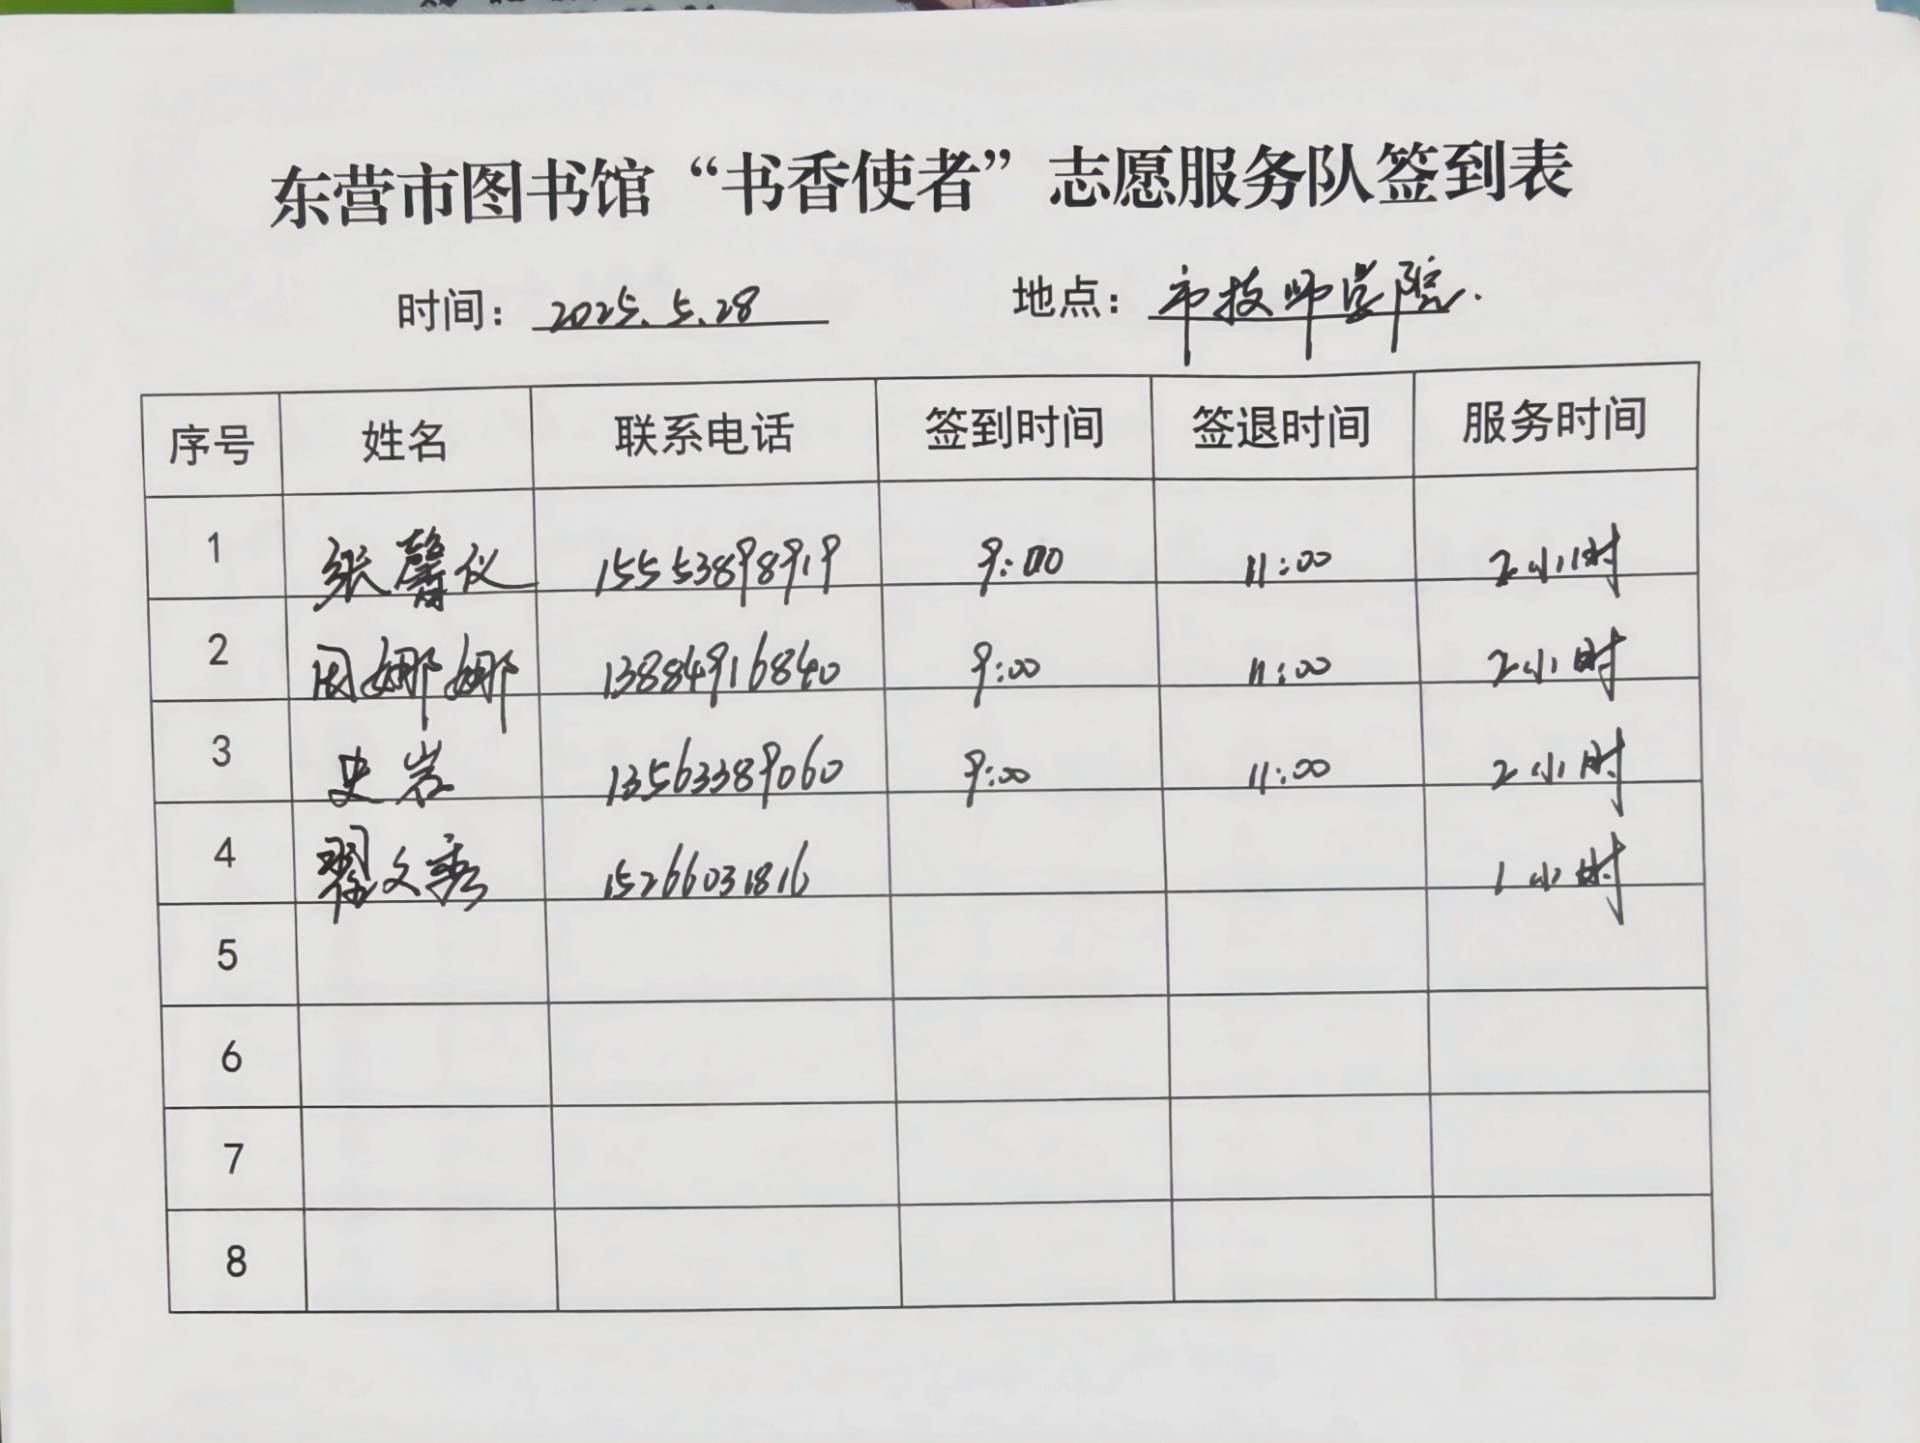 东营市图书馆“书香使者”志愿服务队签到表
时间：2025.5.28 地点：市技师学院.
序号 姓名 联系电话 签到时间 签退时间 服务时间
1 张馨仪 15553898919 9:00 11:00 2小时
2 周娜娜 13884916840 9:00 11:00 2小时
3 史岩 13563389060 9:00 11:00 2小时
4 翟文秀 15266031816 1小时
5
6
7
8